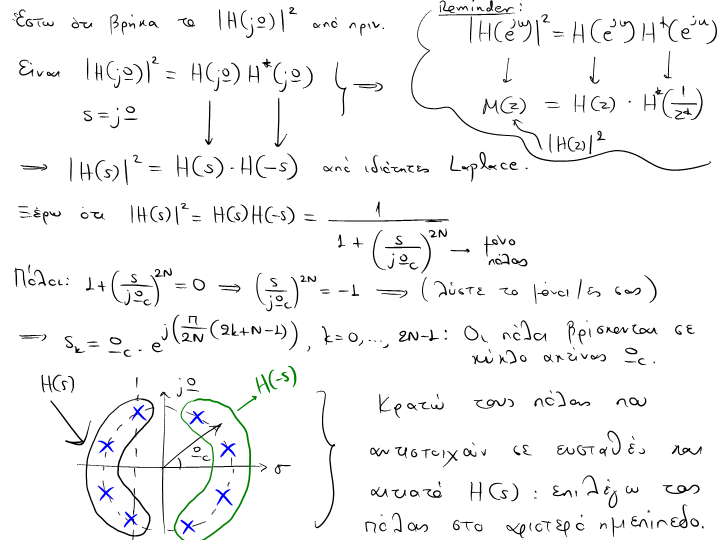 Έστω ότι βρήκα το |H(jΩ)|² από πριν.
Είναι |H(jΩ)|² = H(jΩ) H*(jΩ) } ⟹
s = jΩ
Reminder:
|H(e^{jω})|² = H(e^{jω}) H*(e^{jω})
↓ ↓ ↓
M(z) = H(z) · H*(1/z*)
|H(z)|²
⟹ |H(s)|² = H(s) · H(-s) από ιδιότητες Laplace.
Ξέρω ότι |H(s)|² = H(s)H(-s) = 1 / (1 + (s/jΩc)^{2N}) → μόνο πόλοι
Πόλοι: 1 + (s/jΩc)^{2N} = 0 ⟹ (s/jΩc)^{2N} = -1 ⟹ (λύστε το μόνοι/ες σας)
⟹ s_k = Ωc · e^{j(π/2N (2k+N-1))}, k=0,...,2N-1: Οι πόλοι βρίσκονται σε
κύκλο ακτίνας Ωc.
H(s)
jΩ
H(-s)
Ωc
σ
Κρατώ τους πόλους που
αντιστοιχούν σε ευσταθές και
αιτιατό H(s): επιλέγω τους
πόλους στο αριστερό ημιεπίπεδο.